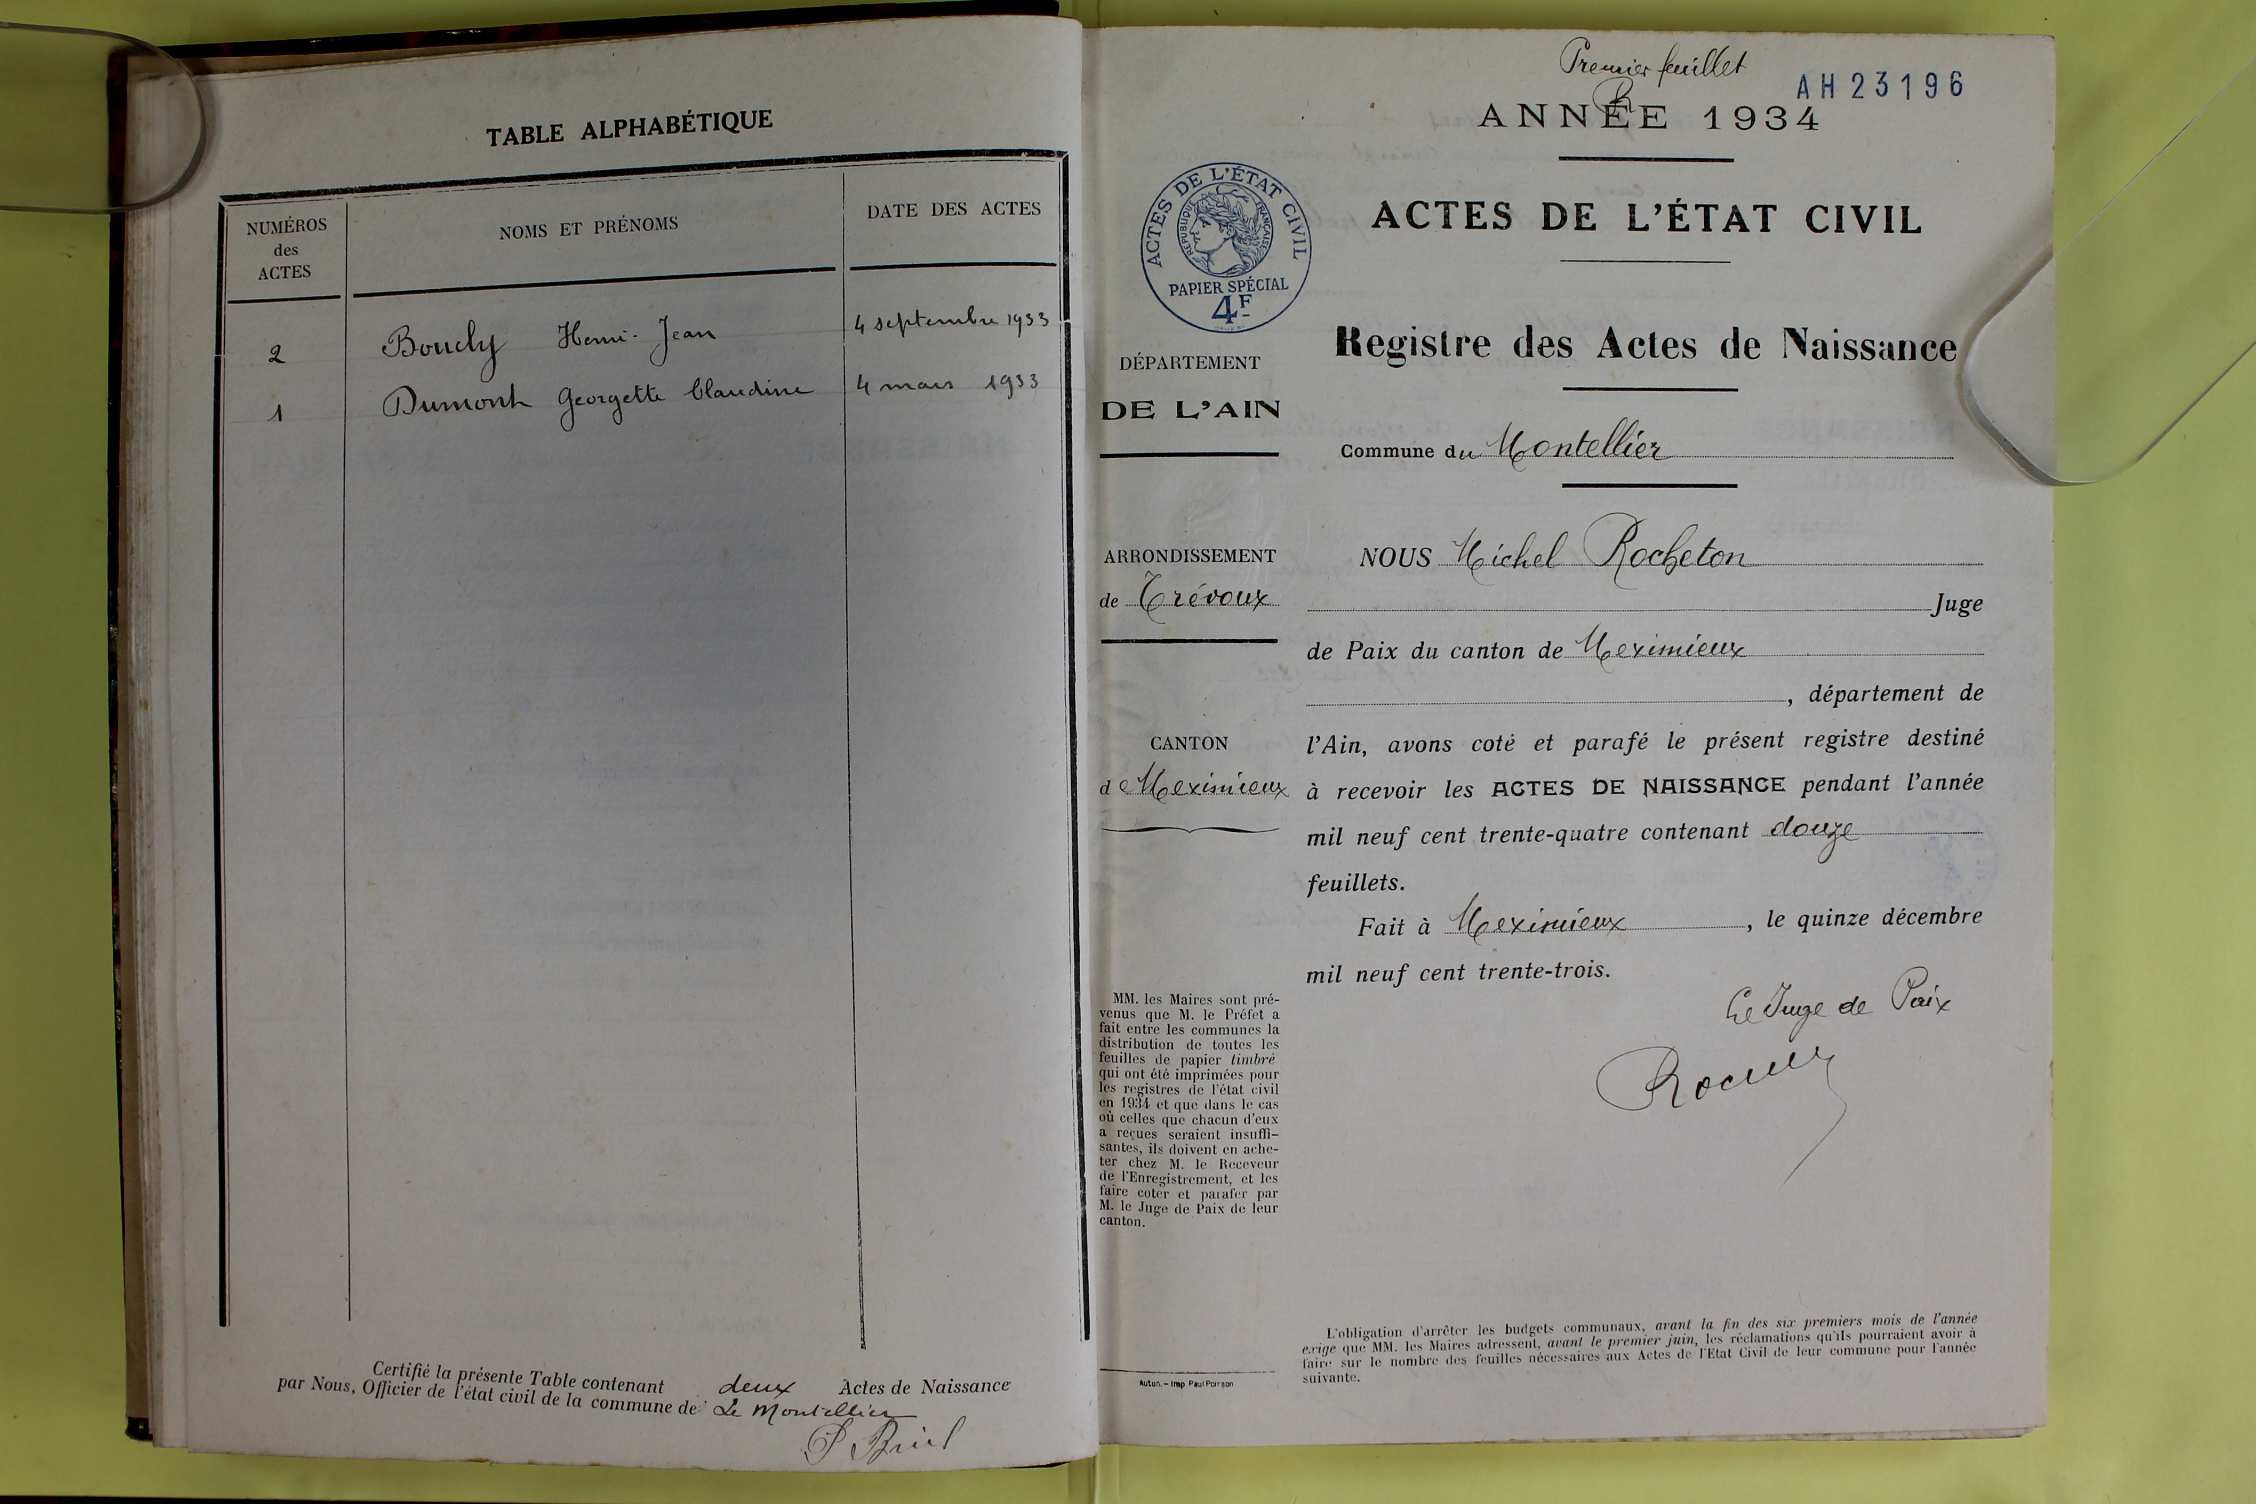 TABLE ALPHABÉTIQUE
NUMÉROS
des
ACTES
NOMS ET PRÉNOMS
DATE DES ACTES
2 Boucly Henri-Jean 4 septembre 1933
1 Dumont Georgette Claudine 4 mars 1933
Certifié la présente Table contenant deux Actes de Naissance
par Nous, Officier de l'état civil de la commune de Le Montellier
Premier feuillet
AH23196
ANNÉE 1934
ACTES DE L'ÉTAT CIVIL
RÉPUBLIQUE FRANÇAISE
PAPIER SPÉCIAL
4F
ACTES DE L'ÉTAT CIVIL
Registre des Actes de Naissance
DÉPARTEMENT
DE L'AIN
Commune du Montellier
ARRONDISSEMENT
de Trévoux
CANTON
d Meximieux
NOUS Michel Rocheton
Juge
de Paix du canton de Meximieux
, département de
l'Ain, avons coté et parafé le présent registre destiné
à recevoir les ACTES DE NAISSANCE pendant l'année
mil neuf cent trente-quatre contenant douze
feuillets.
Fait à Meximieux, le quinze décembre
mil neuf cent trente-trois.
Le Juge de Paix
MM. les Maires sont pré-
venus que M. le Préfet a
fait entre les communes la
distribution de toutes les
feuilles de papier timbré
qui ont été imprimées pour
les registres de l'état civil
en 1934 et que dans le cas
où celles que chacun d'eux
a reçues seraient insuffi-
santes, ils doivent en ache-
ter chez M. le Receveur
de l'Enregistrement, et les
faire coter et parafer par
M. le Juge de Paix de leur
canton.
Autun. - Imp Paul Poirson
L'obligation d'arrêter les budgets communaux, avant la fin des six premiers mois de l'année
exige que MM. les Maires adressent, avant le premier juin, les réclamations qu'ils pourraient avoir à
faire sur le nombre des feuilles nécessaires aux Actes de l'Etat Civil de leur commune pour l'année
suivante.